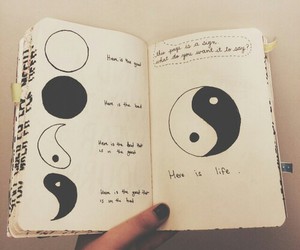 Here is the good
Here is the bad
Here is the bad that
is in the good
Here is the good that
is in the bad
This page is a sign.
what do you want it to say?
Here is life.